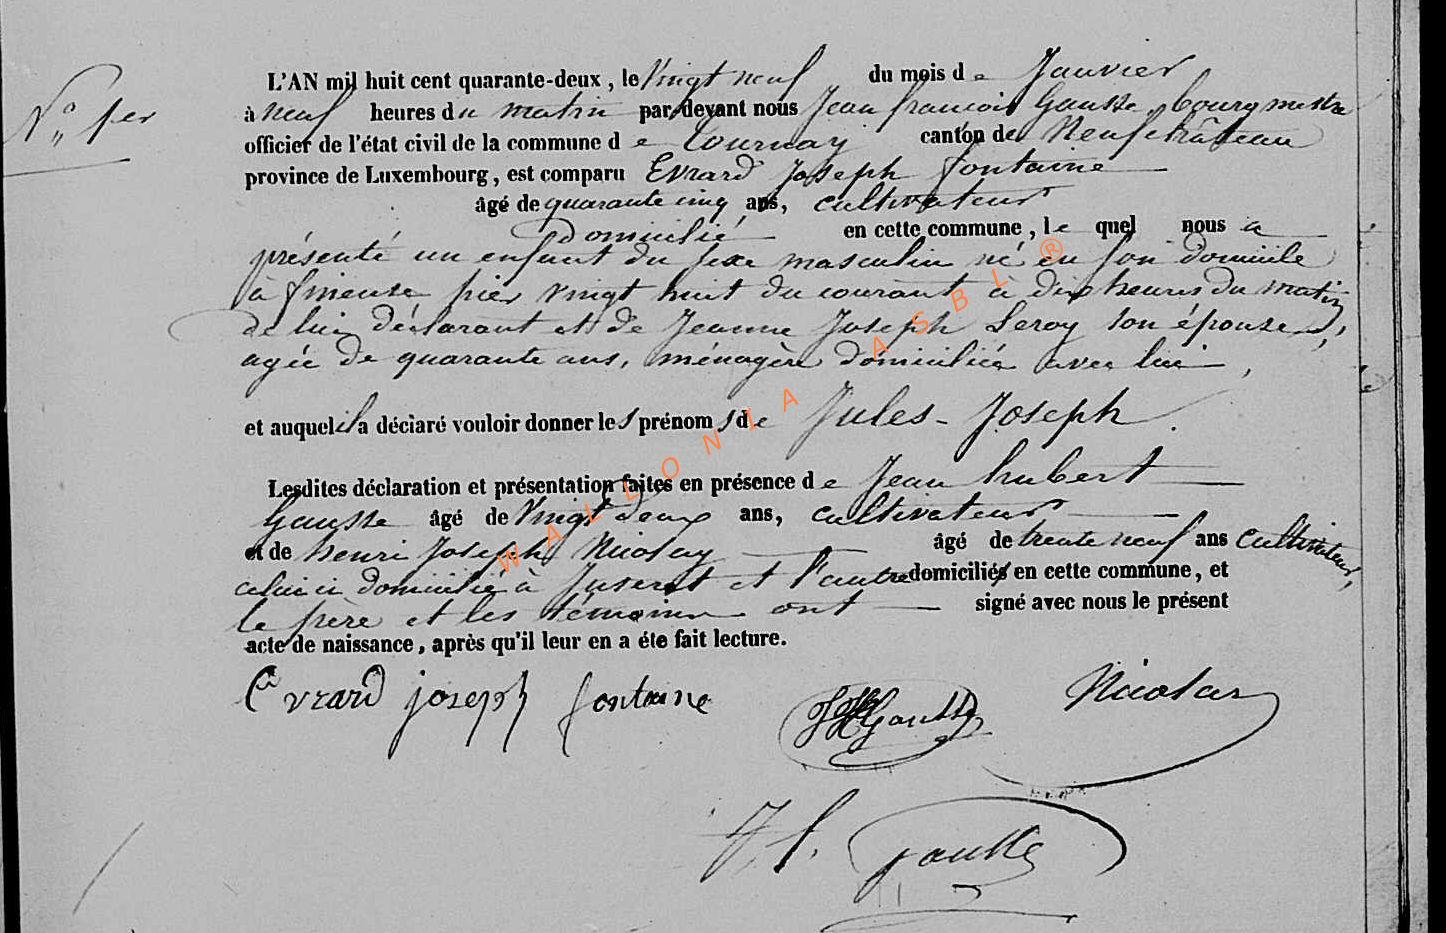 N° 1er
L'AN mil huit cent quarante-deux, le Vingt neuf du mois de Janvier
à neuf heures du matin par devant nous Jean françois Gausse, bourgmestre
officier de l'état civil de la commune de Tournay canton de Neufchâteau
province de Luxembourg, est comparu Evrard Joseph fontaine
âgé de quarante cinq ans, cultivateur
Domicilié en cette commune, le quel nous a
présenté un enfant du sexe masculin né en son domicile
à fineuse hier vingt huit du courant à dix heures du matin,
de lui déclarant et de Jeanne Joseph Leroy son épouse,
agée de quarante ans, ménagère domiciliée avec lui,
et auquel il a déclaré vouloir donner les prénoms de Jules-Joseph.
Lesdites déclaration et présentation faites en présence de Jean hubert
Gausse âgé de Vingt deux ans, cultivateur
et de henri Joseph Nicolay âgé de trente neuf ans cultivateur,
celui ci domicilié à Juseret et l'autre domicilié en cette commune, et
le père et les témoins ont signé avec nous le présent
acte de naissance, après qu'il leur en a été fait lecture.
Evrard joseph fontaine
Gausse
Nicolay
J. f. Gausse
WALLONIA ASBL ®